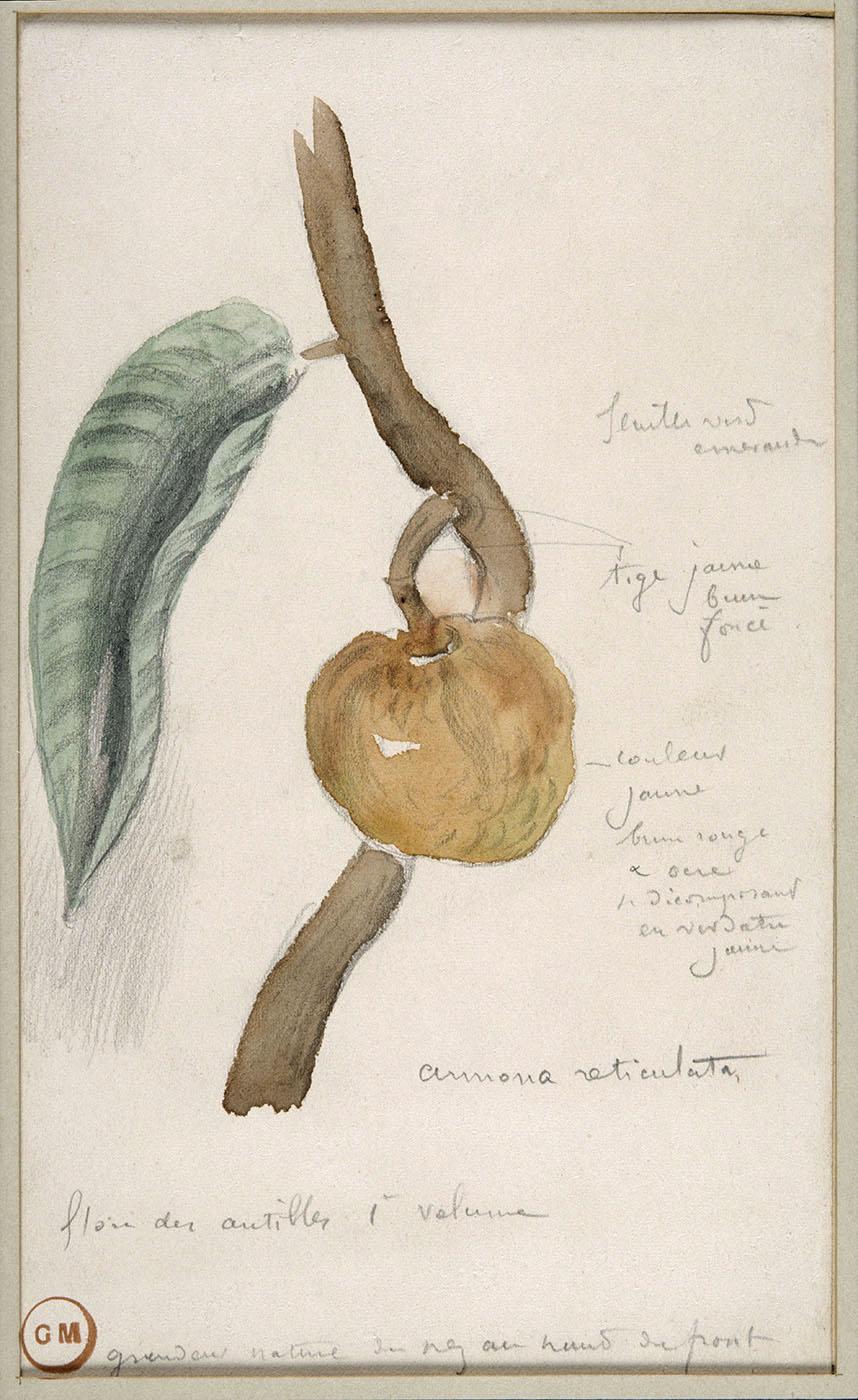 feuilles vert
emeraude
tige jaune
brun
foncé
couleur
jaune
brun rouge
& ocre
se décomposant
en verdatre
jaune
annona reticulata,
flore des antilles 1r volume
GM
grandeur nature du nez au haut du front